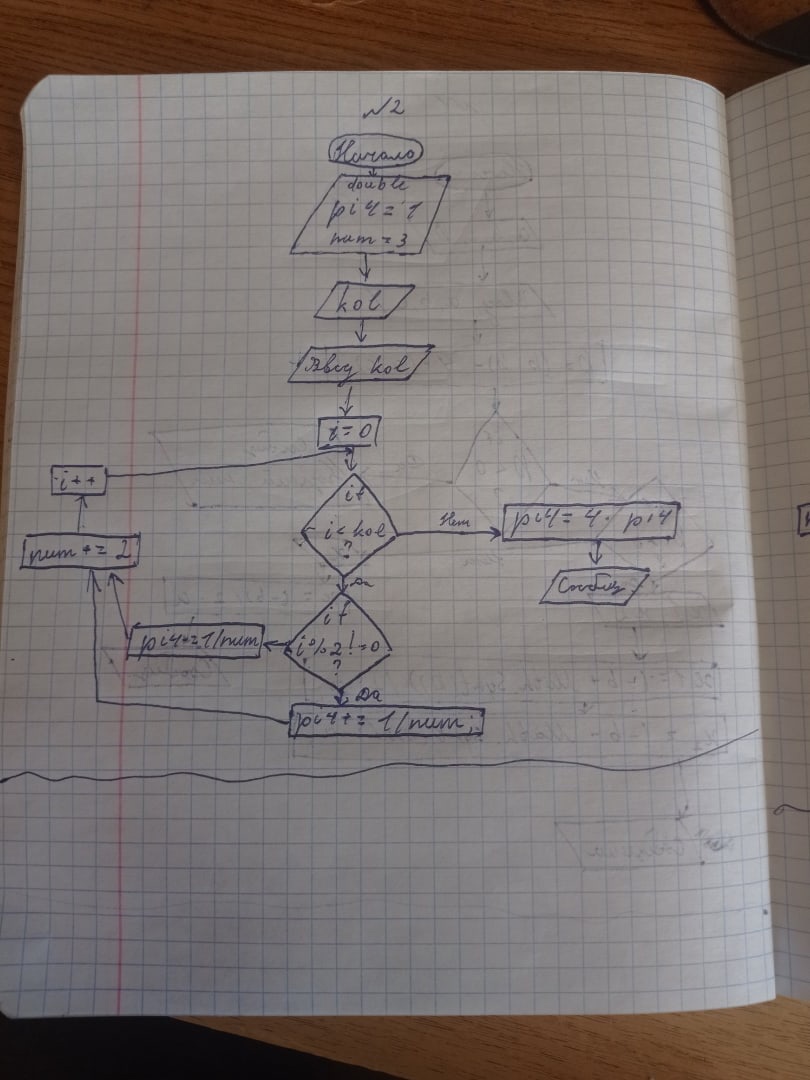 №2
Начало
double
pi4 = 1
num = 3
kol
Ввод kol
i = 0
i++
if
i < kol
?
Нет
pi4 = 4 · pi4
num += 2
Да
if
i % 2 != 0
?
pi4 -= 1/num
Да
pi4 += 1/num;